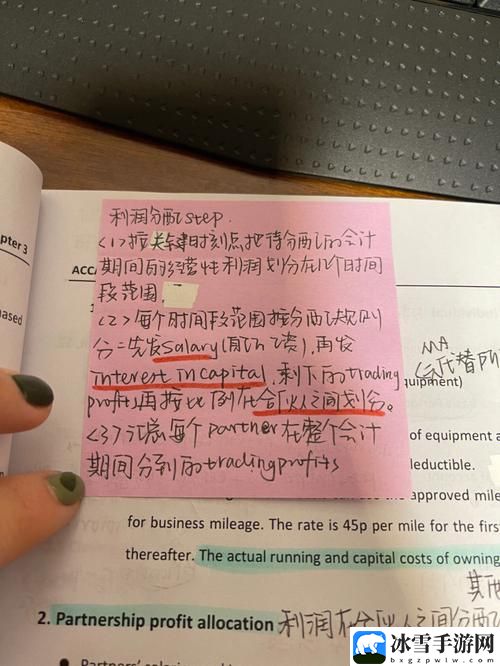 利润分配step.
<1>按关键时刻点把待分配的会计
期间的经营性利润划分在几个时间
段范围
<2>每个时间段范围按分配规则
分：先发salary(前几个该),再发
interest in capital,剩下的trading
profits再按比例在合伙人之间划分。
<3>汇总每个partner在整个会计
期间分到的trading profits
pter 3
ased
ACCA
MA
会代替
quipment)
of equipment a
deductible.
approved mile
for business mileage. The rate is 45p per mile for the first
thereafter. The actual running and capital costs of owning
2. Partnership profit allocation 利润在合伙人之间分配
冰雪手游网
bxgzpzlw.com